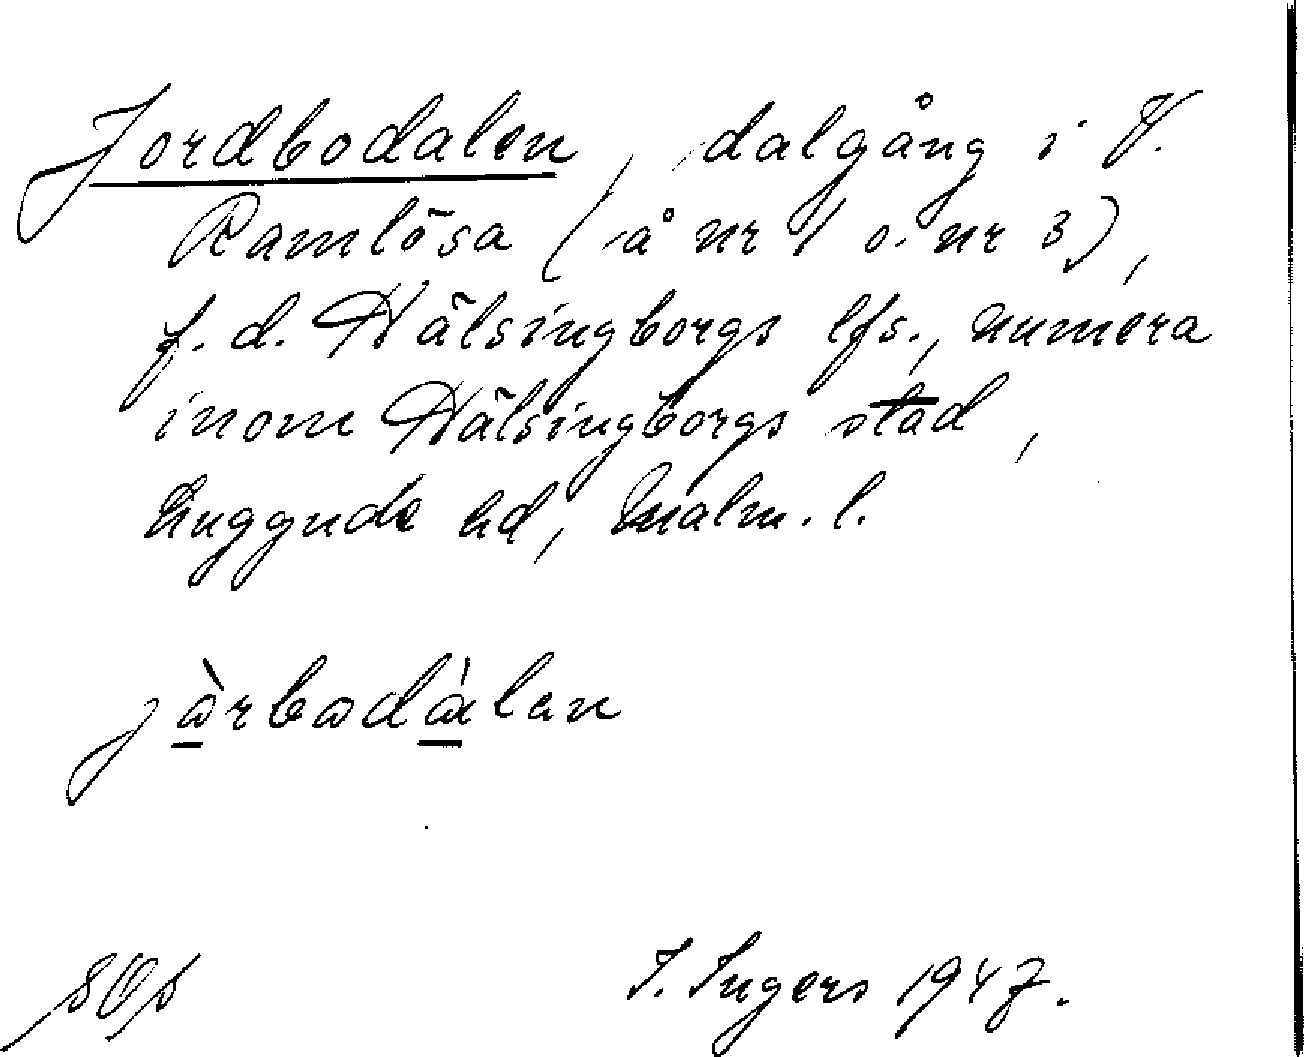 Jordbodalen, dalgång i V.
Ramlösa (å nr 1 o. nr 3),
f.d. Hälsingborgs lfs., numera
inom Hälsingborgs stad,
Luggude hd, Malm. l.
jàrbadálen
I. Ingers 1947.